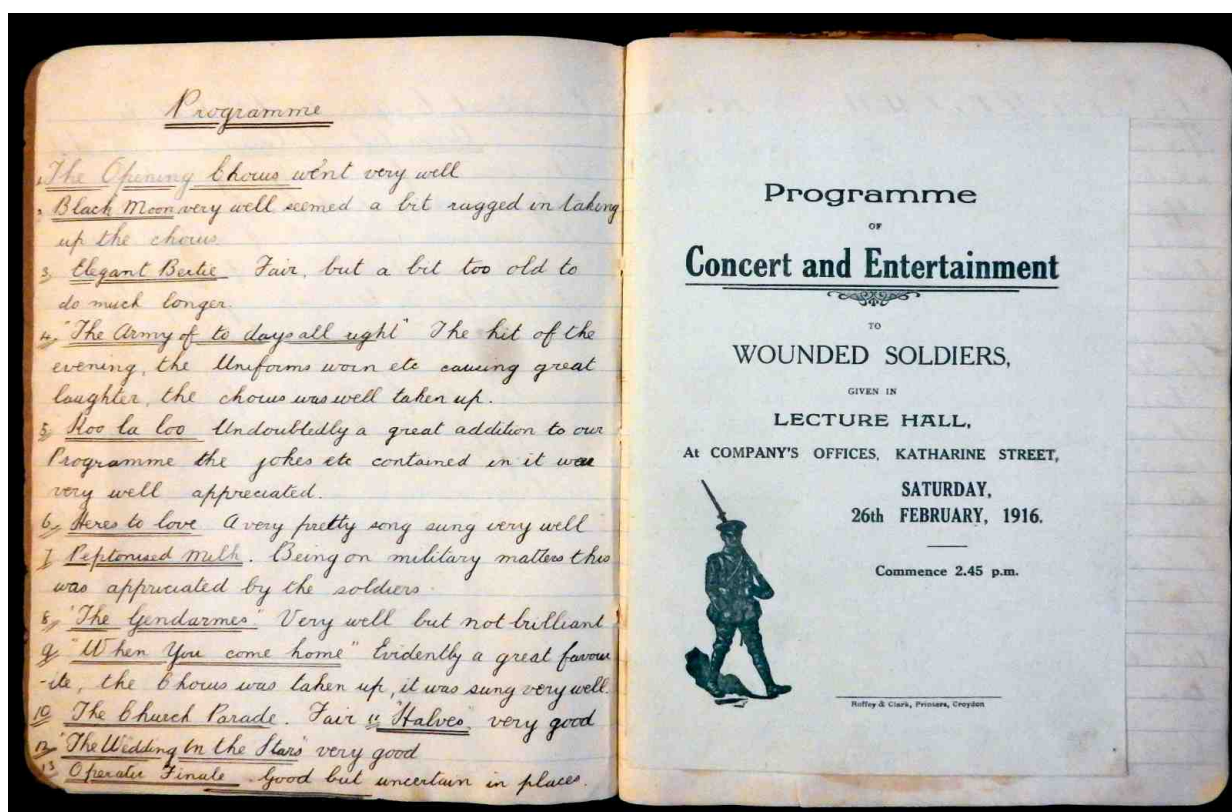 Programme
1, The Opening Chorus went very well
2, Black Moon very well seemed a bit ragged in taking
up the chorus
3, Elegant Bertie Fair, but a bit too old to
do much longer.
4, "The Army of to days all right" The hit of the
evening, the Uniforms worn etc causing great
laughter, the chorus was well taken up.
5, Koo la loo Undoubtedly a great addition to our
Programme the jokes etc contained in it were
very well appreciated.
6, Heres to love A very pretty song sung very well
7 Peptonised Milk. Being on military matters this
was appriciated by the soldiers.
8, "The Gendarmes" Very well but not brilliant
9, "When You come home" Evidently a great favour
-ite, the Chorus was taken up, it was sung very well.
10 The Church Parade. Fair 11 "Halves" very good
12, "The Wedding In the Stars" very good
13 Operatic Finale Good but uncertain in places.
Programme
OF
Concert and Entertainment
TO
WOUNDED SOLDIERS,
GIVEN IN
LECTURE HALL,
At COMPANY'S OFFICES, KATHARINE STREET,
SATURDAY,
26th FEBRUARY, 1916.
Commence 2.45 p.m.
Roffey & Clark, Printers, Croydon